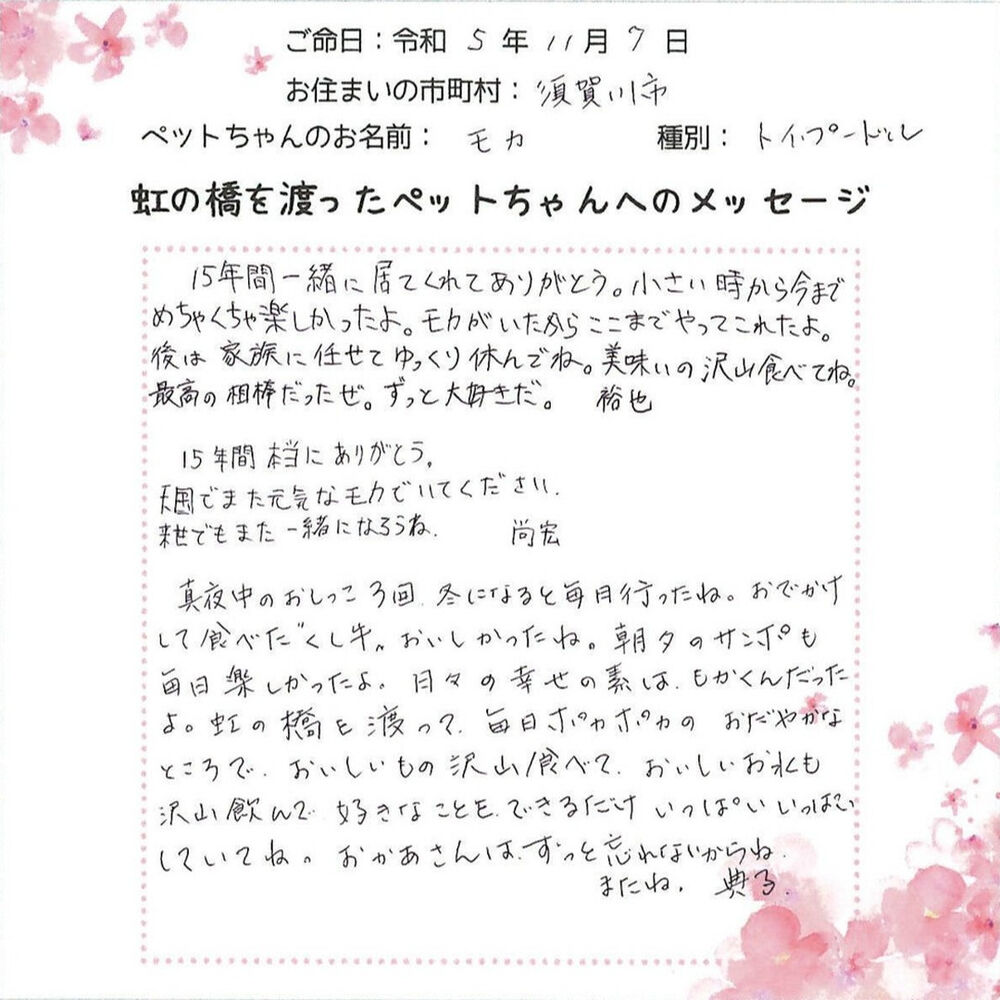 ご命日：令和 5 年 11 月 7 日
お住まいの市町村： 須賀川市
ペットちゃんのお名前： モカ 種別： トイプードル
虹の橋を渡ったペットちゃんへのメッセージ
15年間一緒に居てくれてありがとう。小さい時から今まで
めちゃくちゃ楽しかったよ。モカがいたからここまでやってこれたよ。
後は家族に任せてゆっくり休んでね。美味いの沢山食べてね。
最高の相棒だったぜ。ずっと大好きだ。 裕也
15年間本当にありがとう。
天国でまた元気なモカでいてください.
来世でもまた一緒になろうね. 尚宏
真夜中のおしっこ3回、冬になると毎日行ったね。おでかけ
して食べただくし牛、おいしかったね。朝夕のサンポも
毎日楽しかったよ。日々の幸せの素は、もかくんだった
よ。虹の橋を渡って、毎日ポカポカの おだやかな
ところで、おいしいもの沢山食べて、おいしいお水も
沢山飲んで 好きなことを、できるだけ いっぱいいっぱい
していてね。おかあさんは、ずっと忘れないからね.
またね. 典子.